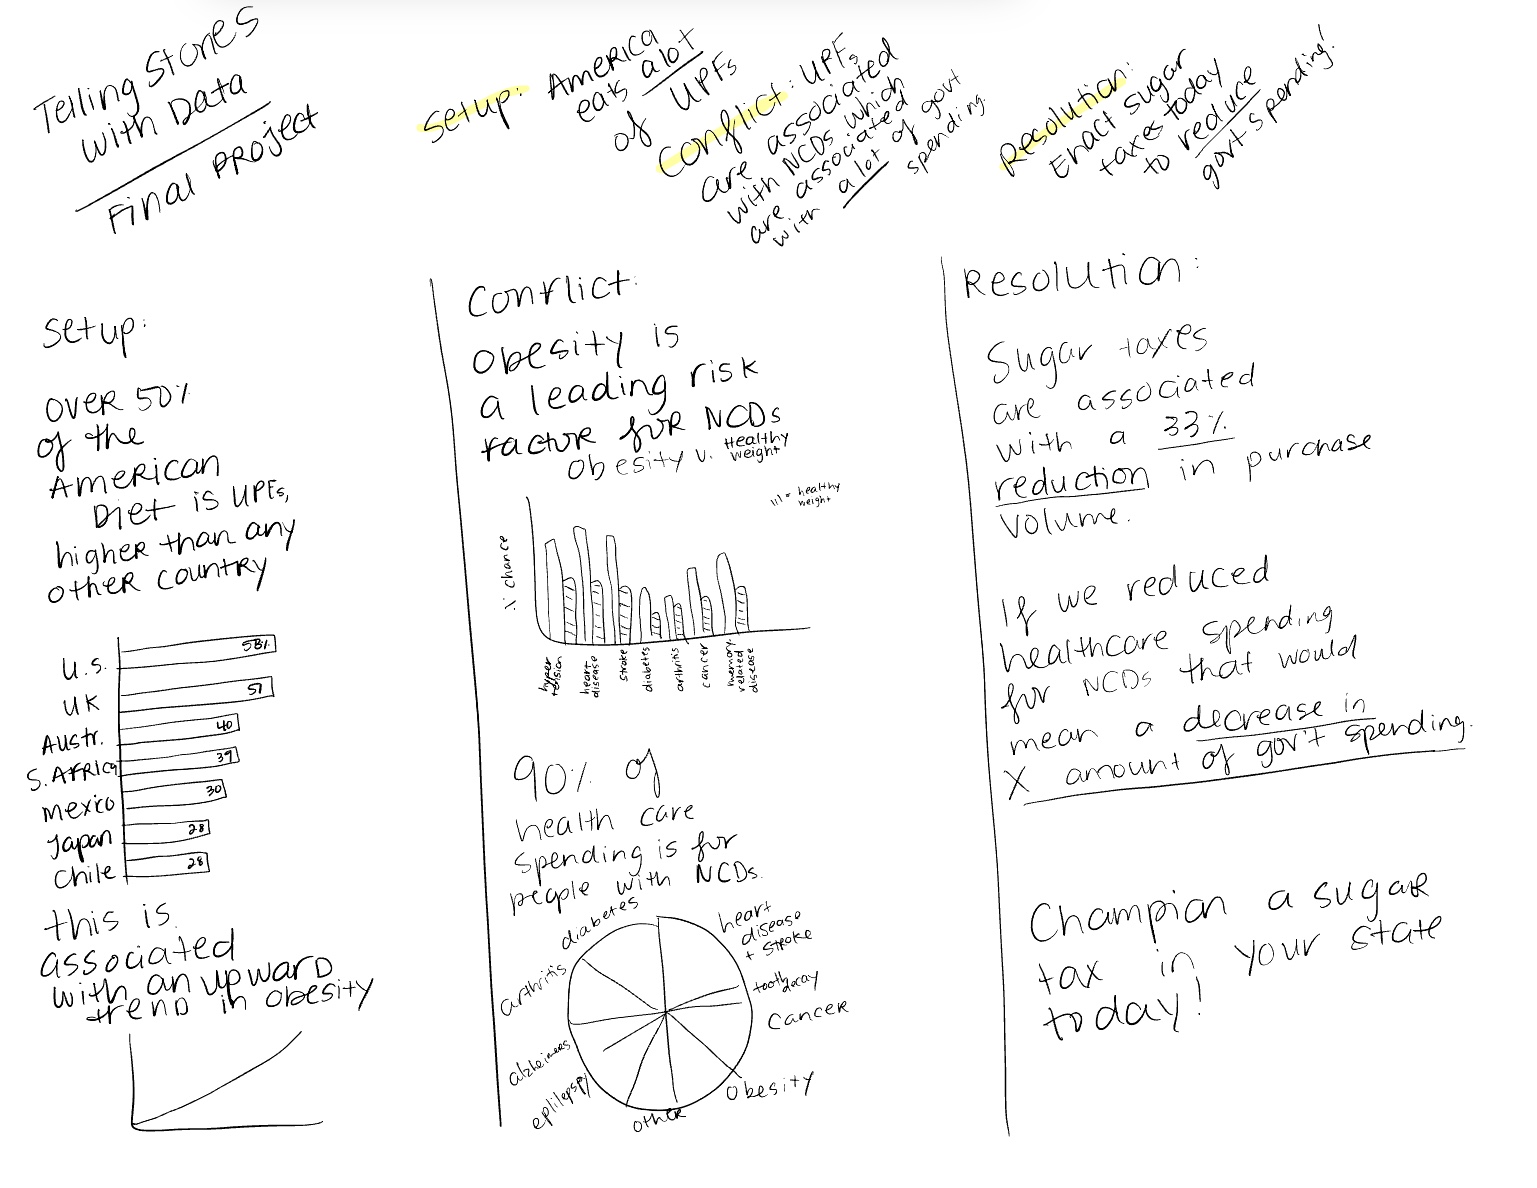 Telling Stories
With Data
Final Project
Setup: America
eats a lot
of UPFs
Conflict: UPFs
are associated
with NCDs which
are associated
with a lot of govt
spending
Resolution:
Enact sugar
taxes today
to reduce
govt spending!
Setup:
Over 50%
of the
American
Diet is UPFs,
higher than any
other country
U.S. 58%
UK 57
Austr. 40
S. Africa 39
Mexico 30
Japan 28
Chile 28
this is
associated
with an upward
trend in obesity
Conflict:
Obesity is
a leading risk
factor for NCDs
Obesity v. Healthy
weight
= healthy
weight
% chance
hyper
tension
heart
disease
stroke
diabetes
arthritis
cancer
memory-
related
disease
90% of
health care
spending is for
people with NCDs.
diabetes
heart
disease
+ stroke
arthritis
tooth decay
Cancer
alzheimers
epilepsy
other
Obesity
Resolution:
Sugar taxes
are associated
with a 33%
reduction in purchase
volume.
If we reduced
healthcare spending
for NCDs that would
mean a decrease in
X amount of gov't spending.
Champion a sugar
tax in your state
today!